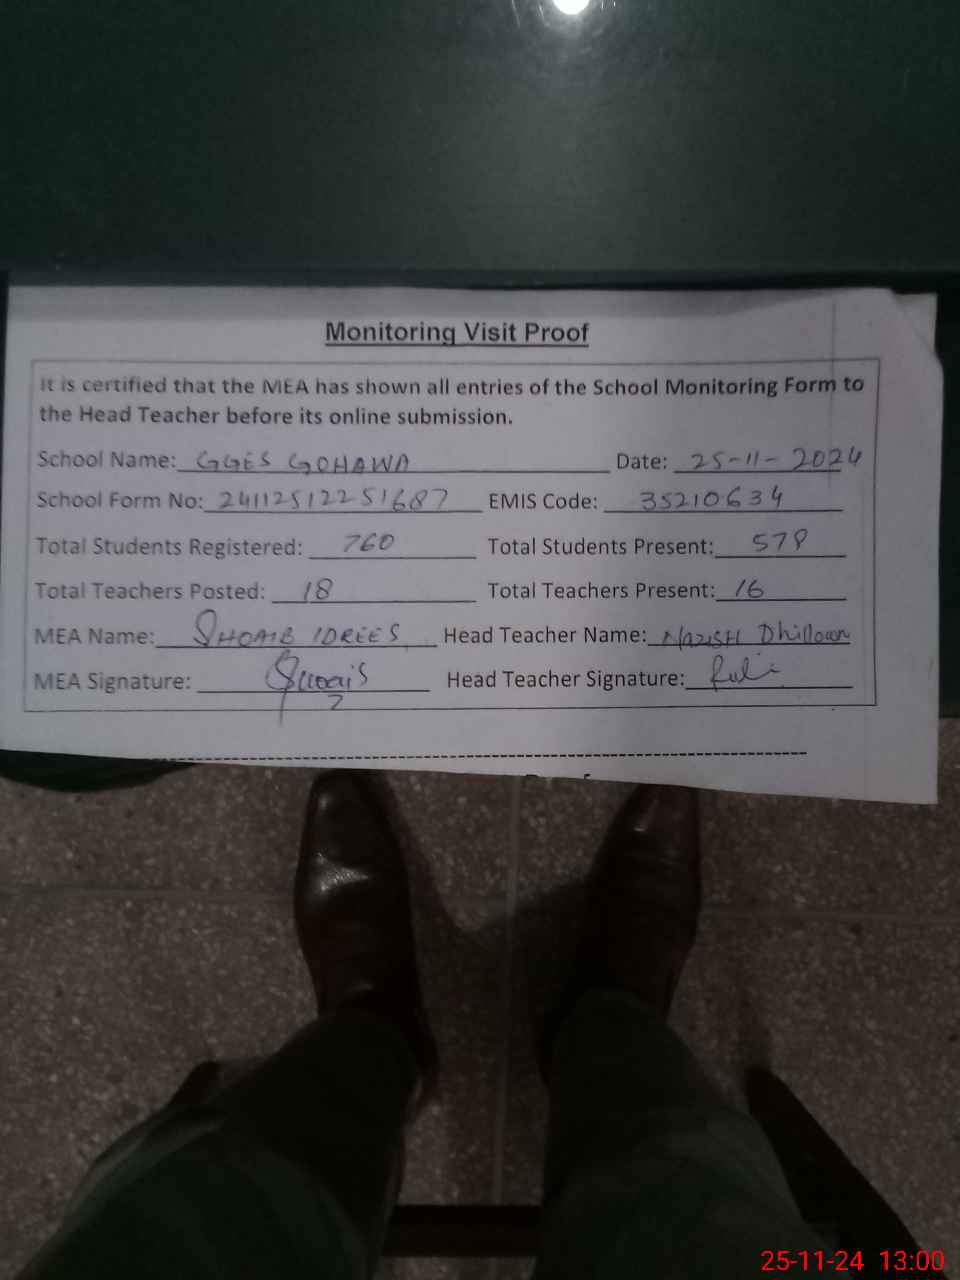 Monitoring Visit Proof
It is certified that the MEA has shown all entries of the School Monitoring Form to
the Head Teacher before its online submission.
School Name: GGES GOHAWA Date: 25-11-2024
School Form No: 24112512251687 EMIS Code: 35210634
Total Students Registered: 760 Total Students Present: 578
Total Teachers Posted: 18 Total Teachers Present: 16
MEA Name: SHOAIB IDREES Head Teacher Name: NAZISH Dhilloan
MEA Signature: Head Teacher Signature:
25-11-24 13:00